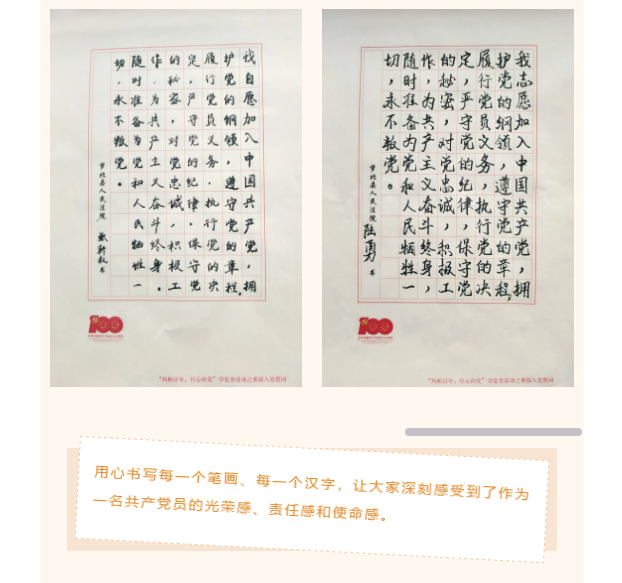 我自愿加入中国共产党，拥
护党的纲领，遵守党的章程，
履行党员义务，执行党的决
定，严守党的纪律，保守党
的秘密，对党忠诚，积极工
作，为共产主义奋斗终身。
随时准备为党和人民牺牲一
切，永不叛党。
萝北县人民法院 书
100
我志愿加入中国共产党，拥
护党的纲领，遵守党的章程，
履行党员义务，执行党的决
定，严守党的纪律，保守党
的秘密，对党忠诚，积极工
作，为共产主义奋斗终身，
随时准备为党和人民牺牲一
切，永不叛党。
萝北县人民法院 陆勇 书
100
用心书写每一个笔画、每一个汉字，让大家深刻感受到了作为
一名共产党员的光荣感、责任感和使命感。